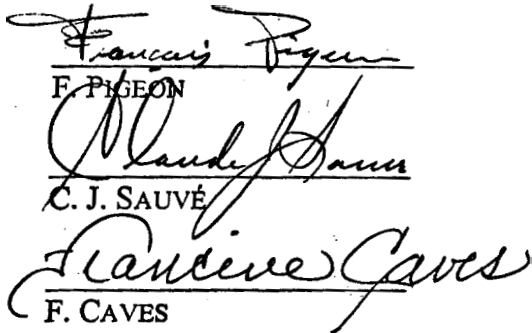 François Pigeon
F. PIGEON
Claude J Sauvé
C. J. SAUVÉ
Francine Caves
F. CAVES